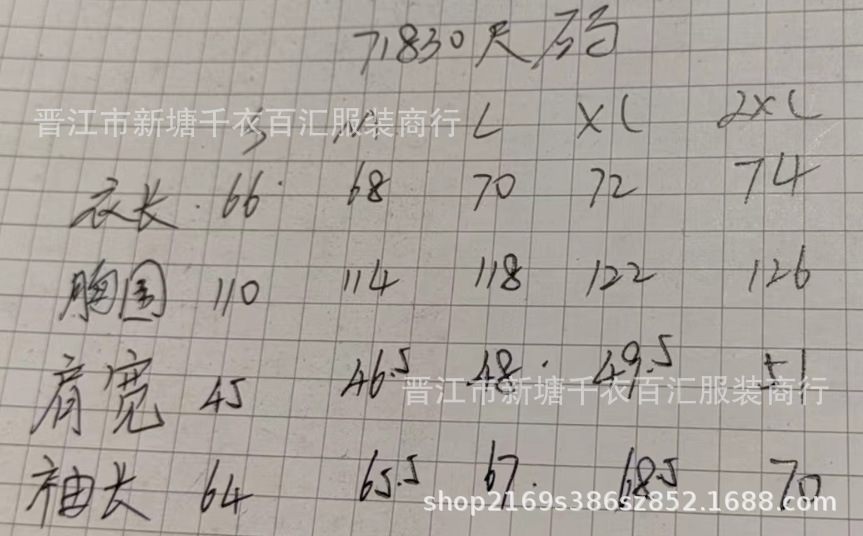 71830尺码
晋江市新塘千衣百汇服装商行
S M L XL 2XL
衣长 66 68 70 72 74
胸围 110 114 118 122 126
肩宽 45 46.5 48 49.5 51
晋江市新塘千衣百汇服装商行
袖长 64 65.5 67 68.5 70
shop2169s386sz852.1688.com